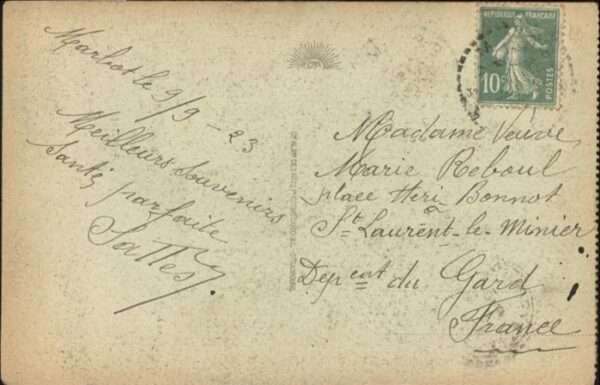 Marbot le 9/9-23
Meilleurs Souvenirs
Santé parfaite
Salles
REPUBLIQUE FRANÇAISE
10c
POSTES
Madame Veuve
Marie Reboul
place Héri Bonnot
St Laurent-le-Minier
Depent du Gard
France